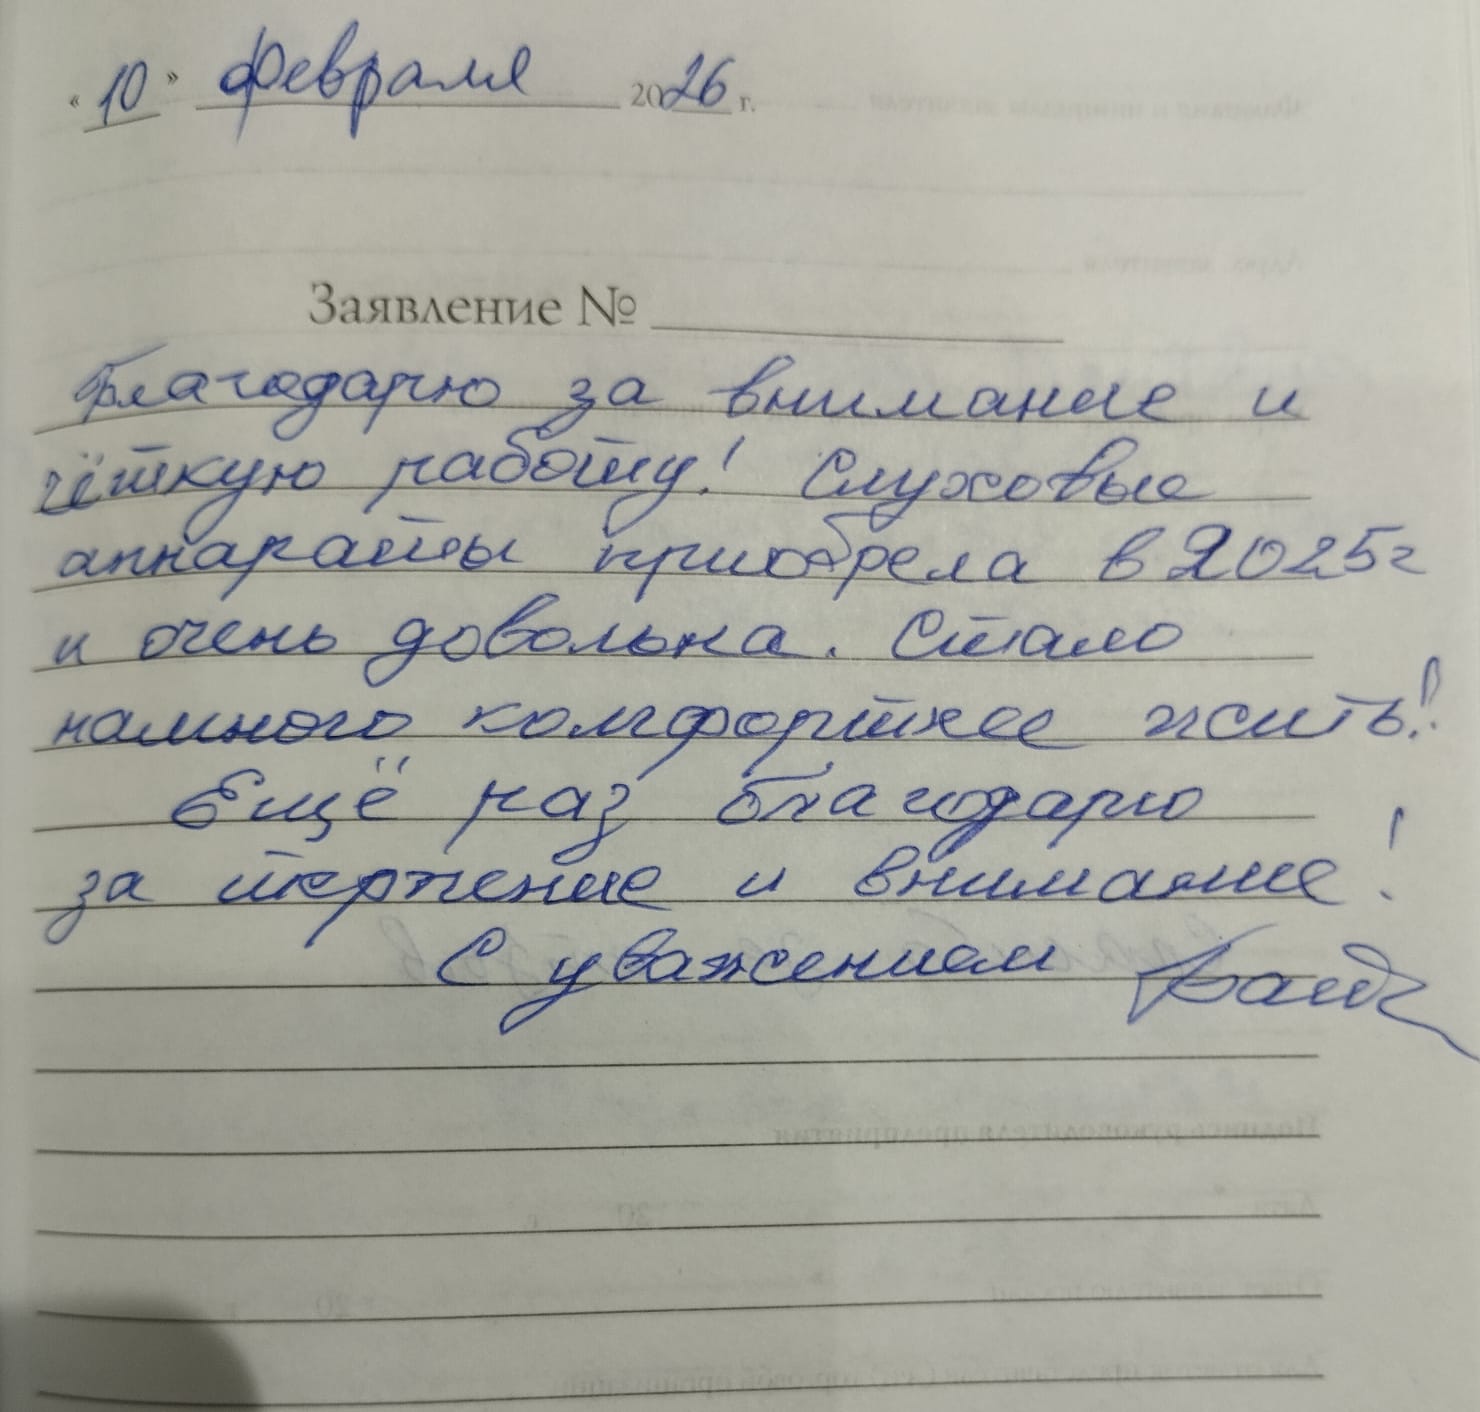 «10» февраля 2026 г.
Заявление №
Благодарю за внимание и
чёткую работу! Слуховые
аппараты приобрела в 2025г
и очень довольна. Стало
намного комфортнее жить!
Ещё раз благодарю
за терпение и внимание!
С уважением